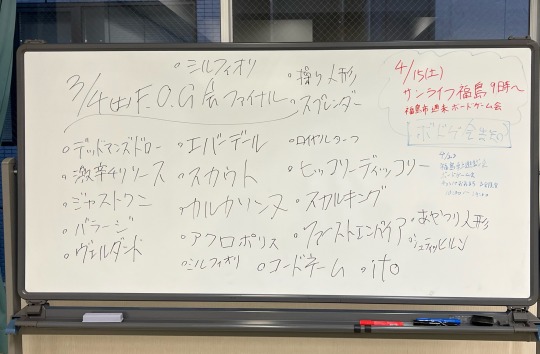 3/4(土) F.O.G会 ファイナル
・シルフィオリ
・操り人形
・スプレンダー
・デッドマンズドロー
・エバーデール
・激辛4リソース
・スカウト
・ヒッコリーディッコリー
・ジャストワン
・カルカソンヌ
・スカルキング
・バラージ
・アクロポリス
・ファーストエンパイア
・あやつり人形
・ヴェルダント
・シルフィオリ
・コードネーム
・ito
4/15(土)
サンライフ福島 9時〜
福島市 週末 ボードゲーム会
ボドゲ会告知